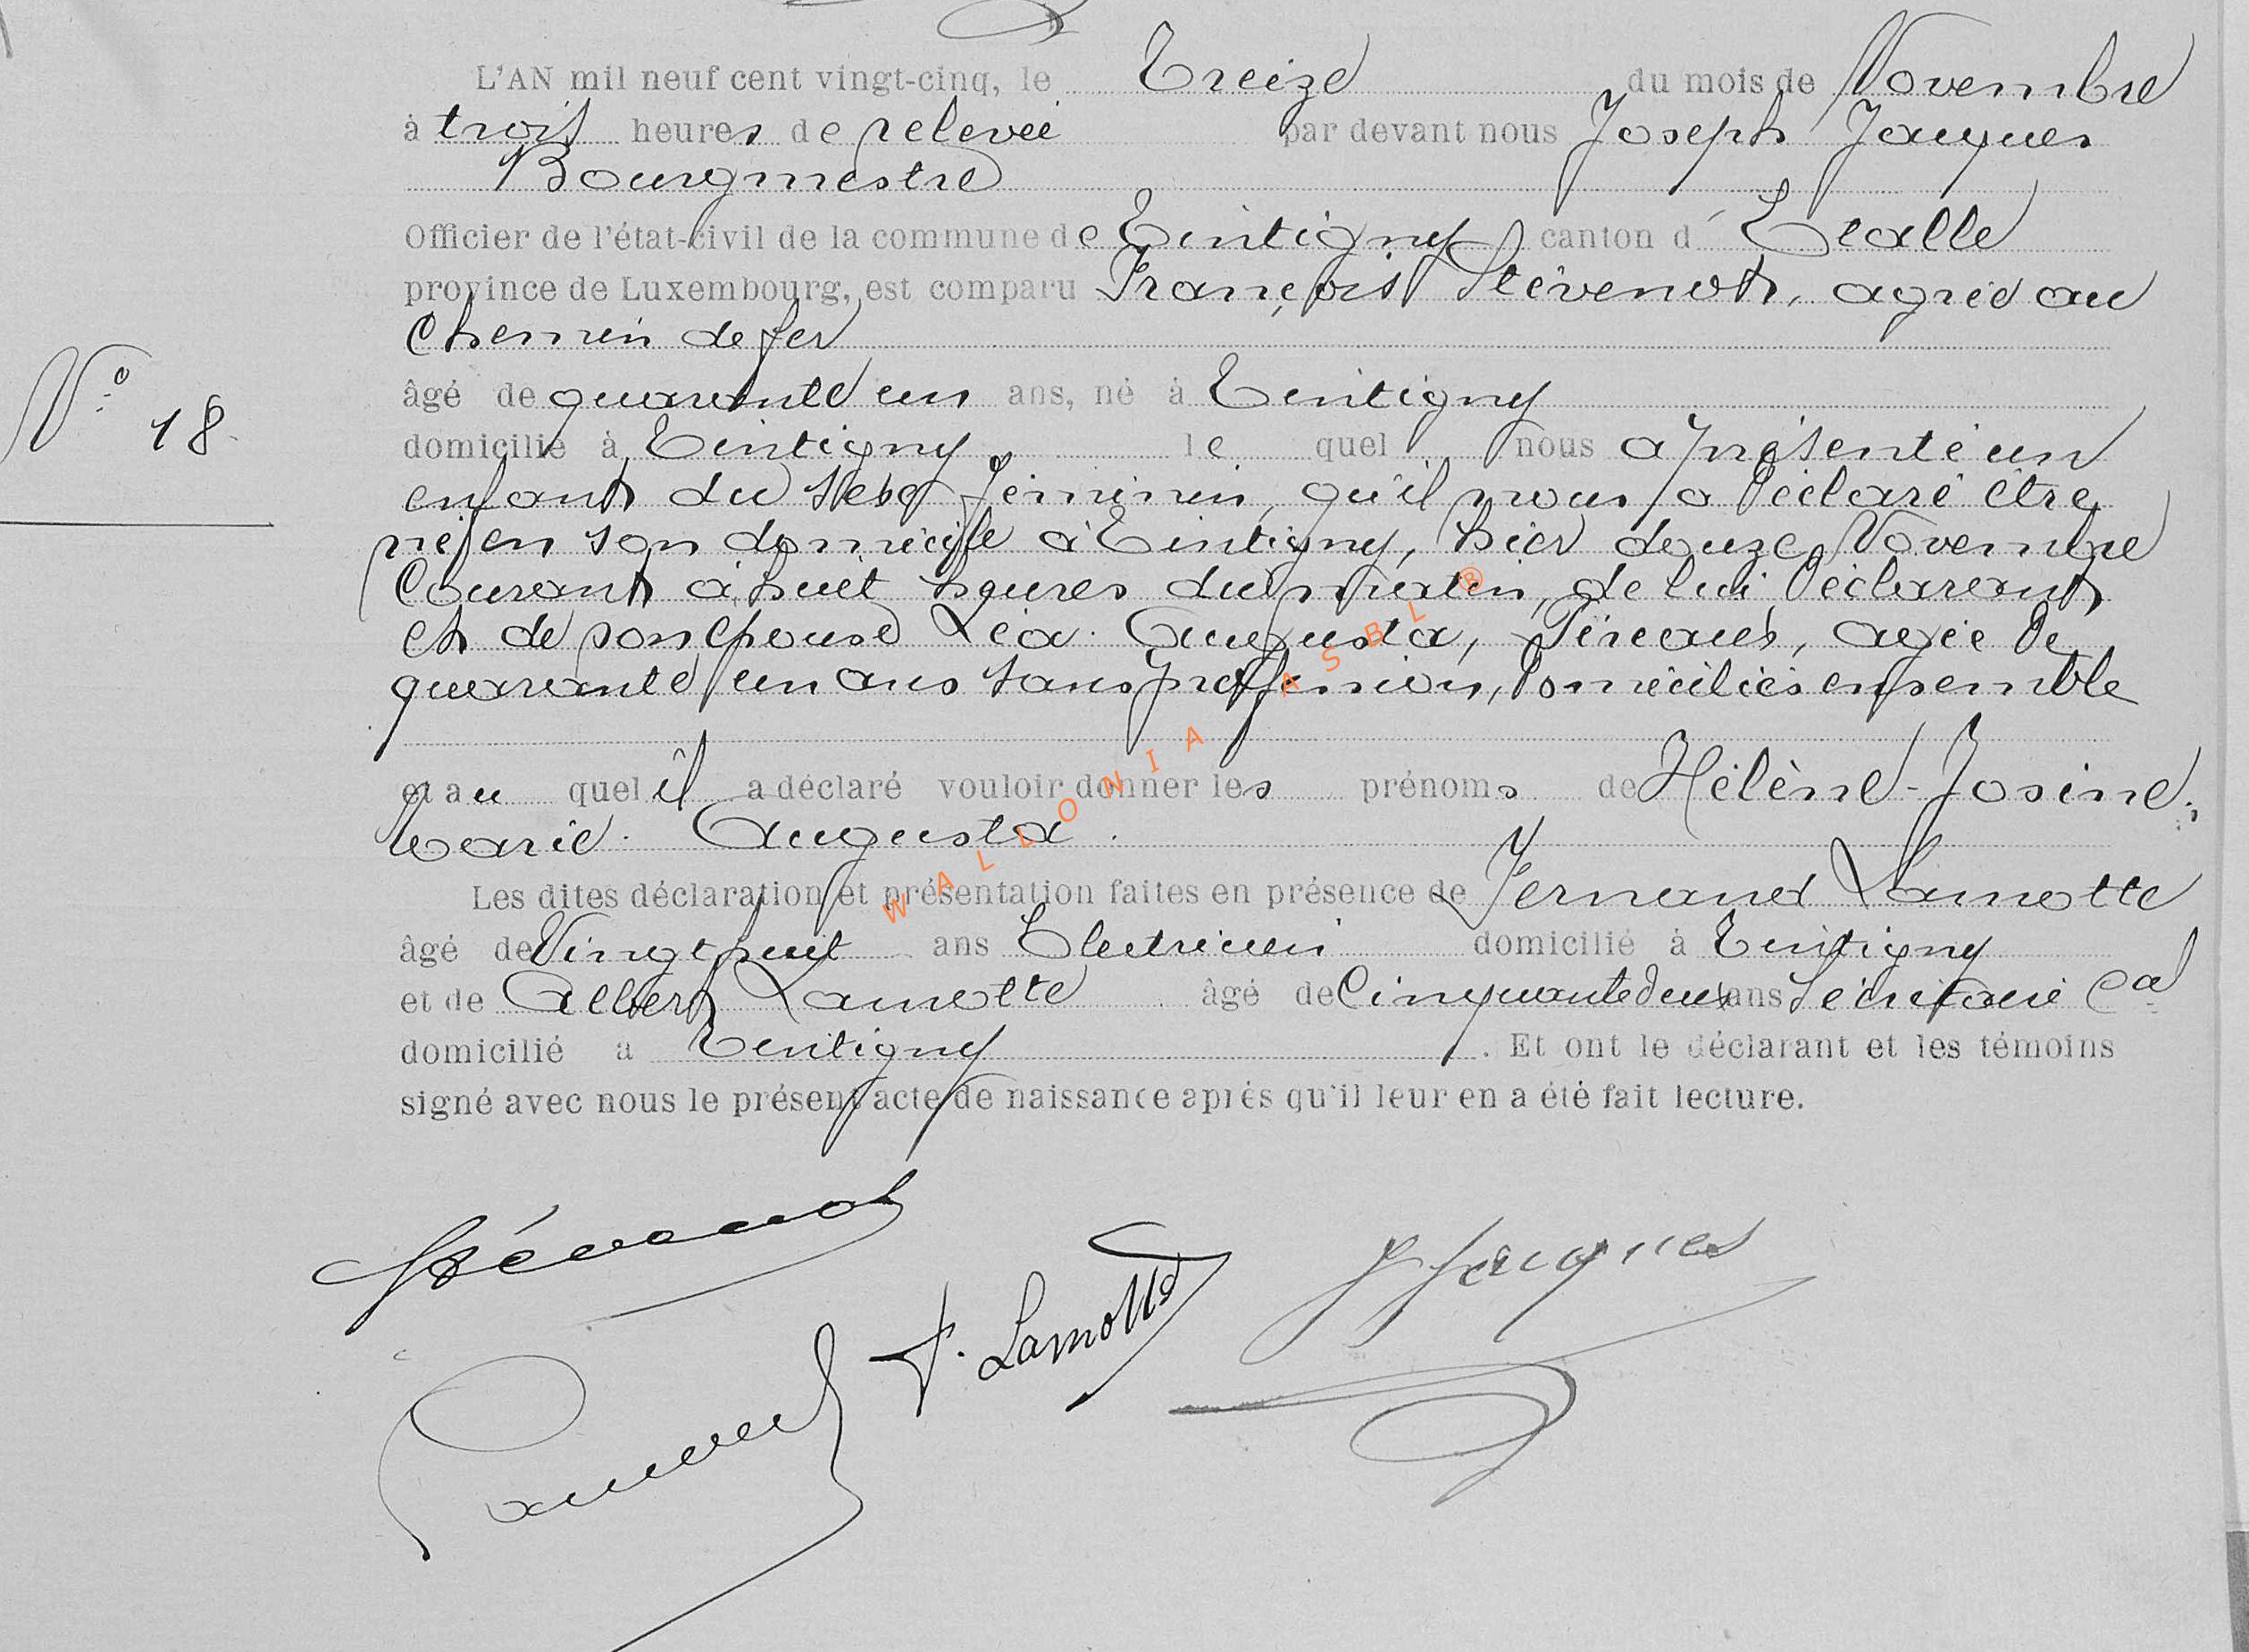 L'AN mil neuf cent vingt-cinq, le Treize du mois de Novembre
à trois heures de relevée par devant nous Joseph Jacques
Bourgmestre
Officier de l'état-civil de la commune de Tintigny canton d'Etalle
province de Luxembourg, est comparu François Stévenot, agréé au
Chemin de fer
N° 18
âgé de quarante un ans, né à Tintigny
domicilié à Tintigny lequel nous a présenté un
enfant du sexe féminin, qu'il nous a déclaré être
né en son domicile à Tintigny, hier douze Novembre
Courant à huit heures du matin, de lui déclarant
et de son épouse Léa. Augusta, agée de
quarante un ans sans profession, domiciliés ensemble
et au quel il a déclaré vouloir donner les prénoms de Hélène-Josine.
Marie. Augusta.
Les dites déclaration et présentation faites en présence de Fernand Lamotte
âgé de Vingt huit ans Electricien domicilié à Tintigny
et de Albert Lamotte âgé de Cinquante deux ans Secrétaire Cal
domicilié a Tintigny. Et ont le déclarant et les témoins
signé avec nous le présent acte de naissance après qu'il leur en a été fait lecture.
Stévenot
F. Lamotte
J Jacques
WALLONIA ASBL ®